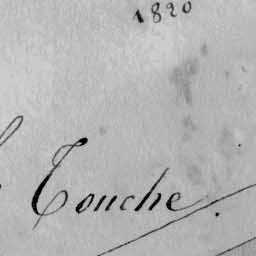 1820
Touche.